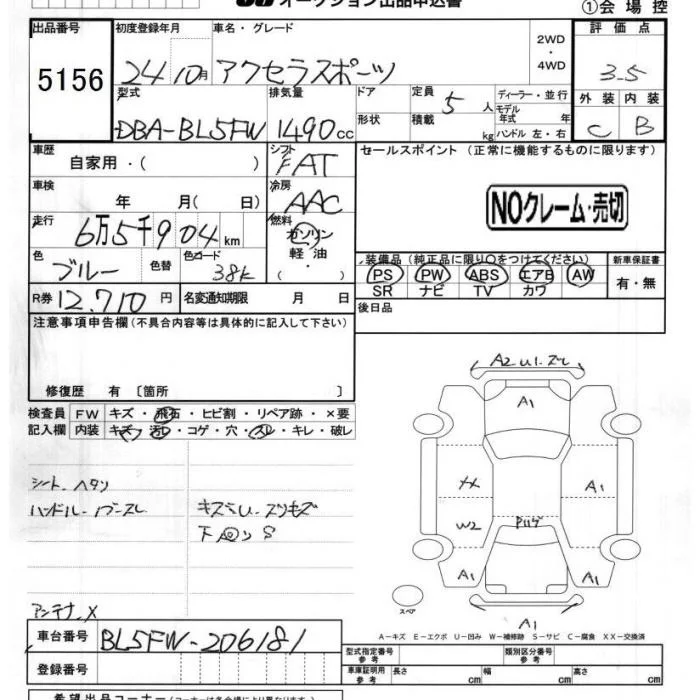 オークション出品申込書
①会場控
出品番号 5156
初度登録年月 24 10月
車名・グレード アクセラスポーツ
2WD・4WD
評価点 3.5
外装 C 内装 B
型式 DBA-BL5FW
排気量 1490cc
ドア
形状
定員 5人
積載 kg
ディーラー・並行
モデル年式 年
ハンドル 左・右
車歴 自家用・( )
シフト FAT
セールスポイント (正常に機能するものに限ります)
NOクレーム・売切
車検 年 月( 日)
冷房 AAC
走行 6万5千904km
燃料 ガソリン 軽油 ・
色 ブルー 色替
色コード 38K
装備品 (純正品に限り○をつけてください)
PS PW ABS エアB AW
SR ナビ TV カワ
新車保証書 有・無
R券 12,710円
名変通知期限 月 日
後日品
注意事項申告欄(不具合内容等は具体的に記入して下さい)
修復歴 有 〔箇所 〕
検査員記入欄
FW キズ・飛石・ヒビ割・リペア跡・×要
内装 キズ・汚レ・コゲ・穴・スレ・キレ・破レ
シート ヘタリ
ハンドル
下回りS
アンテナ X
A1
A1
W2
A1
A1
A1
スペア
A-キズ E-エクボ U-凹み W-補修跡 S-サビ C-腐食 XX-交換済
車台番号 BL5FW-206181
登録番号
型式指定番号 参考
類別区分番号 参考
車庫証明用 参考 長さ cm 幅 cm 高さ cm
希望出品コーナー